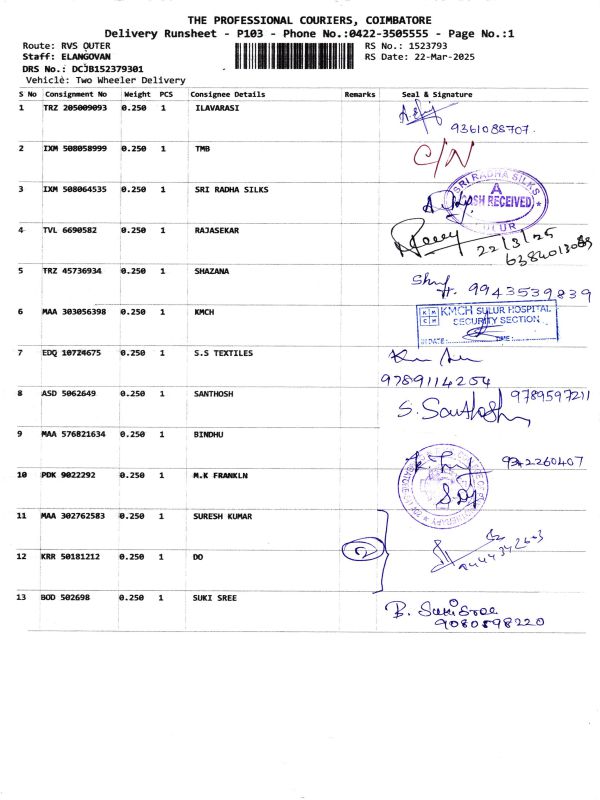 THE PROFESSIONAL COURIERS, COIMBATORE
Delivery Runsheet - P103 - Phone No.:0422-3505555 - Page No.:1
Route: RVS OUTER
RS No.: 1523793
Staff: ELANGOVAN
RS Date: 22-Mar-2025
DRS No.: DCJB152379301
Vehicle: Two Wheeler Delivery
S No Consignment No Weight PCS Consignee Details Remarks Seal & Signature
1 TRZ 205009093 0.250 1 ILAVARASI
9361088707.
2 IXM 508058999 0.250 1 TMB C/N
3 IXM 508064535 0.250 1 SRI RADHA SILKS
SRI RADHA SILKS
A
RECEIVED)
SULUR
4 TVL 6690582 0.250 1 RAJASEKAR
22/3/25
5 TRZ 45736934 0.250 1 SHAZANA
9943539839
6 MAA 303056398 0.250 1 KMCH
KMCH SULUR HOSPITAL
SECURITY SECTION
DATE: TIME:
7 EDQ 10724675 0.250 1 S.S TEXTILES
9789114254
8 ASD 5062649 0.250 1 SANTHOSH 9789597211
S. Santhosh
9 MAA 576821634 0.250 1 BINDHU
9342260407
10 PDK 9022292 0.250 1 M.K FRANKLN
11 MAA 302762583 0.250 1 SURESH KUMAR
12 KRR 50181212 0.250 1 DO 2
13 BOD 502698 0.250 1 SUKI SREE
B. SukiSree
9080598220